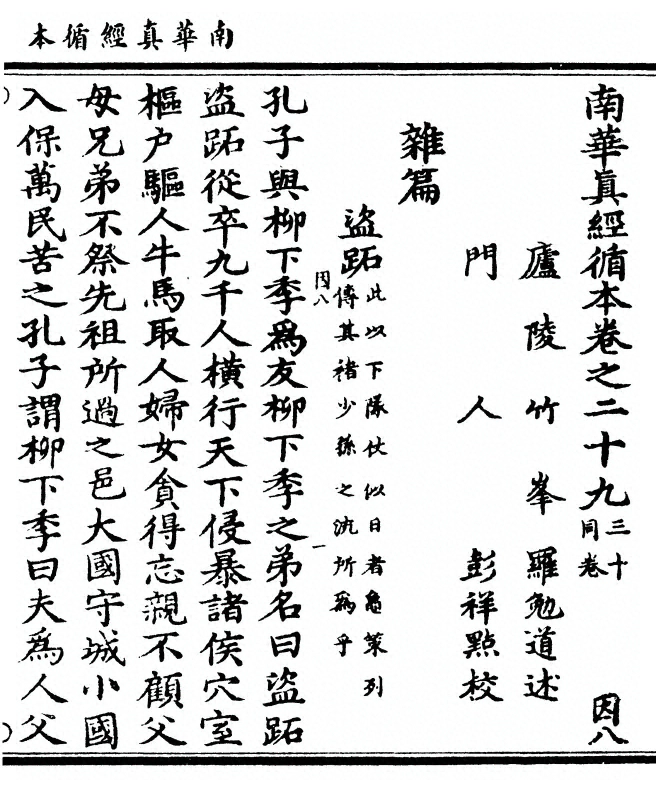 南華真經循本
南華眞經循本卷之二十九三十同卷 因八
廬陵竹峯羅勉道述
門人彭祥點校
雜篇
盜跖此以下隊仗似日者龜策列
傳其褚少孫之流所爲乎
因八 一
孔子與柳下季爲友柳下季之弟名曰盜跖
盜跖從卒九千人橫行天下侵暴諸侯穴室
樞户驅人牛馬取人婦女貪得忘親不顧父
母兄弟不祭先祖所過之邑大國守城小國
入保萬民苦之孔子謂柳下季曰夫爲人父